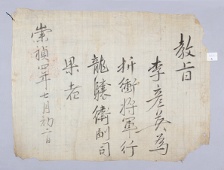 教旨
李彦英爲
折衝將軍行
龍驤衛副司
果者
崇禎四年七月初二日